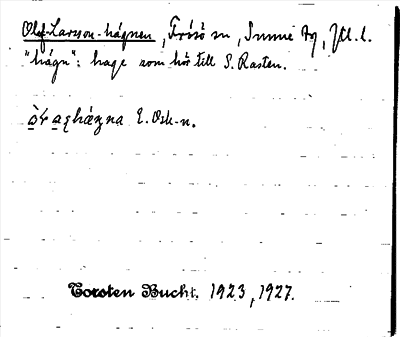 Olof-Larsson-hágnen, Frösö sn, Sunne tg, Jtl. l.
"hágn": hage som hör till S. Rasten.
hǽgna E. Osk-n.
Torsten Bucht. 1923, 1927.